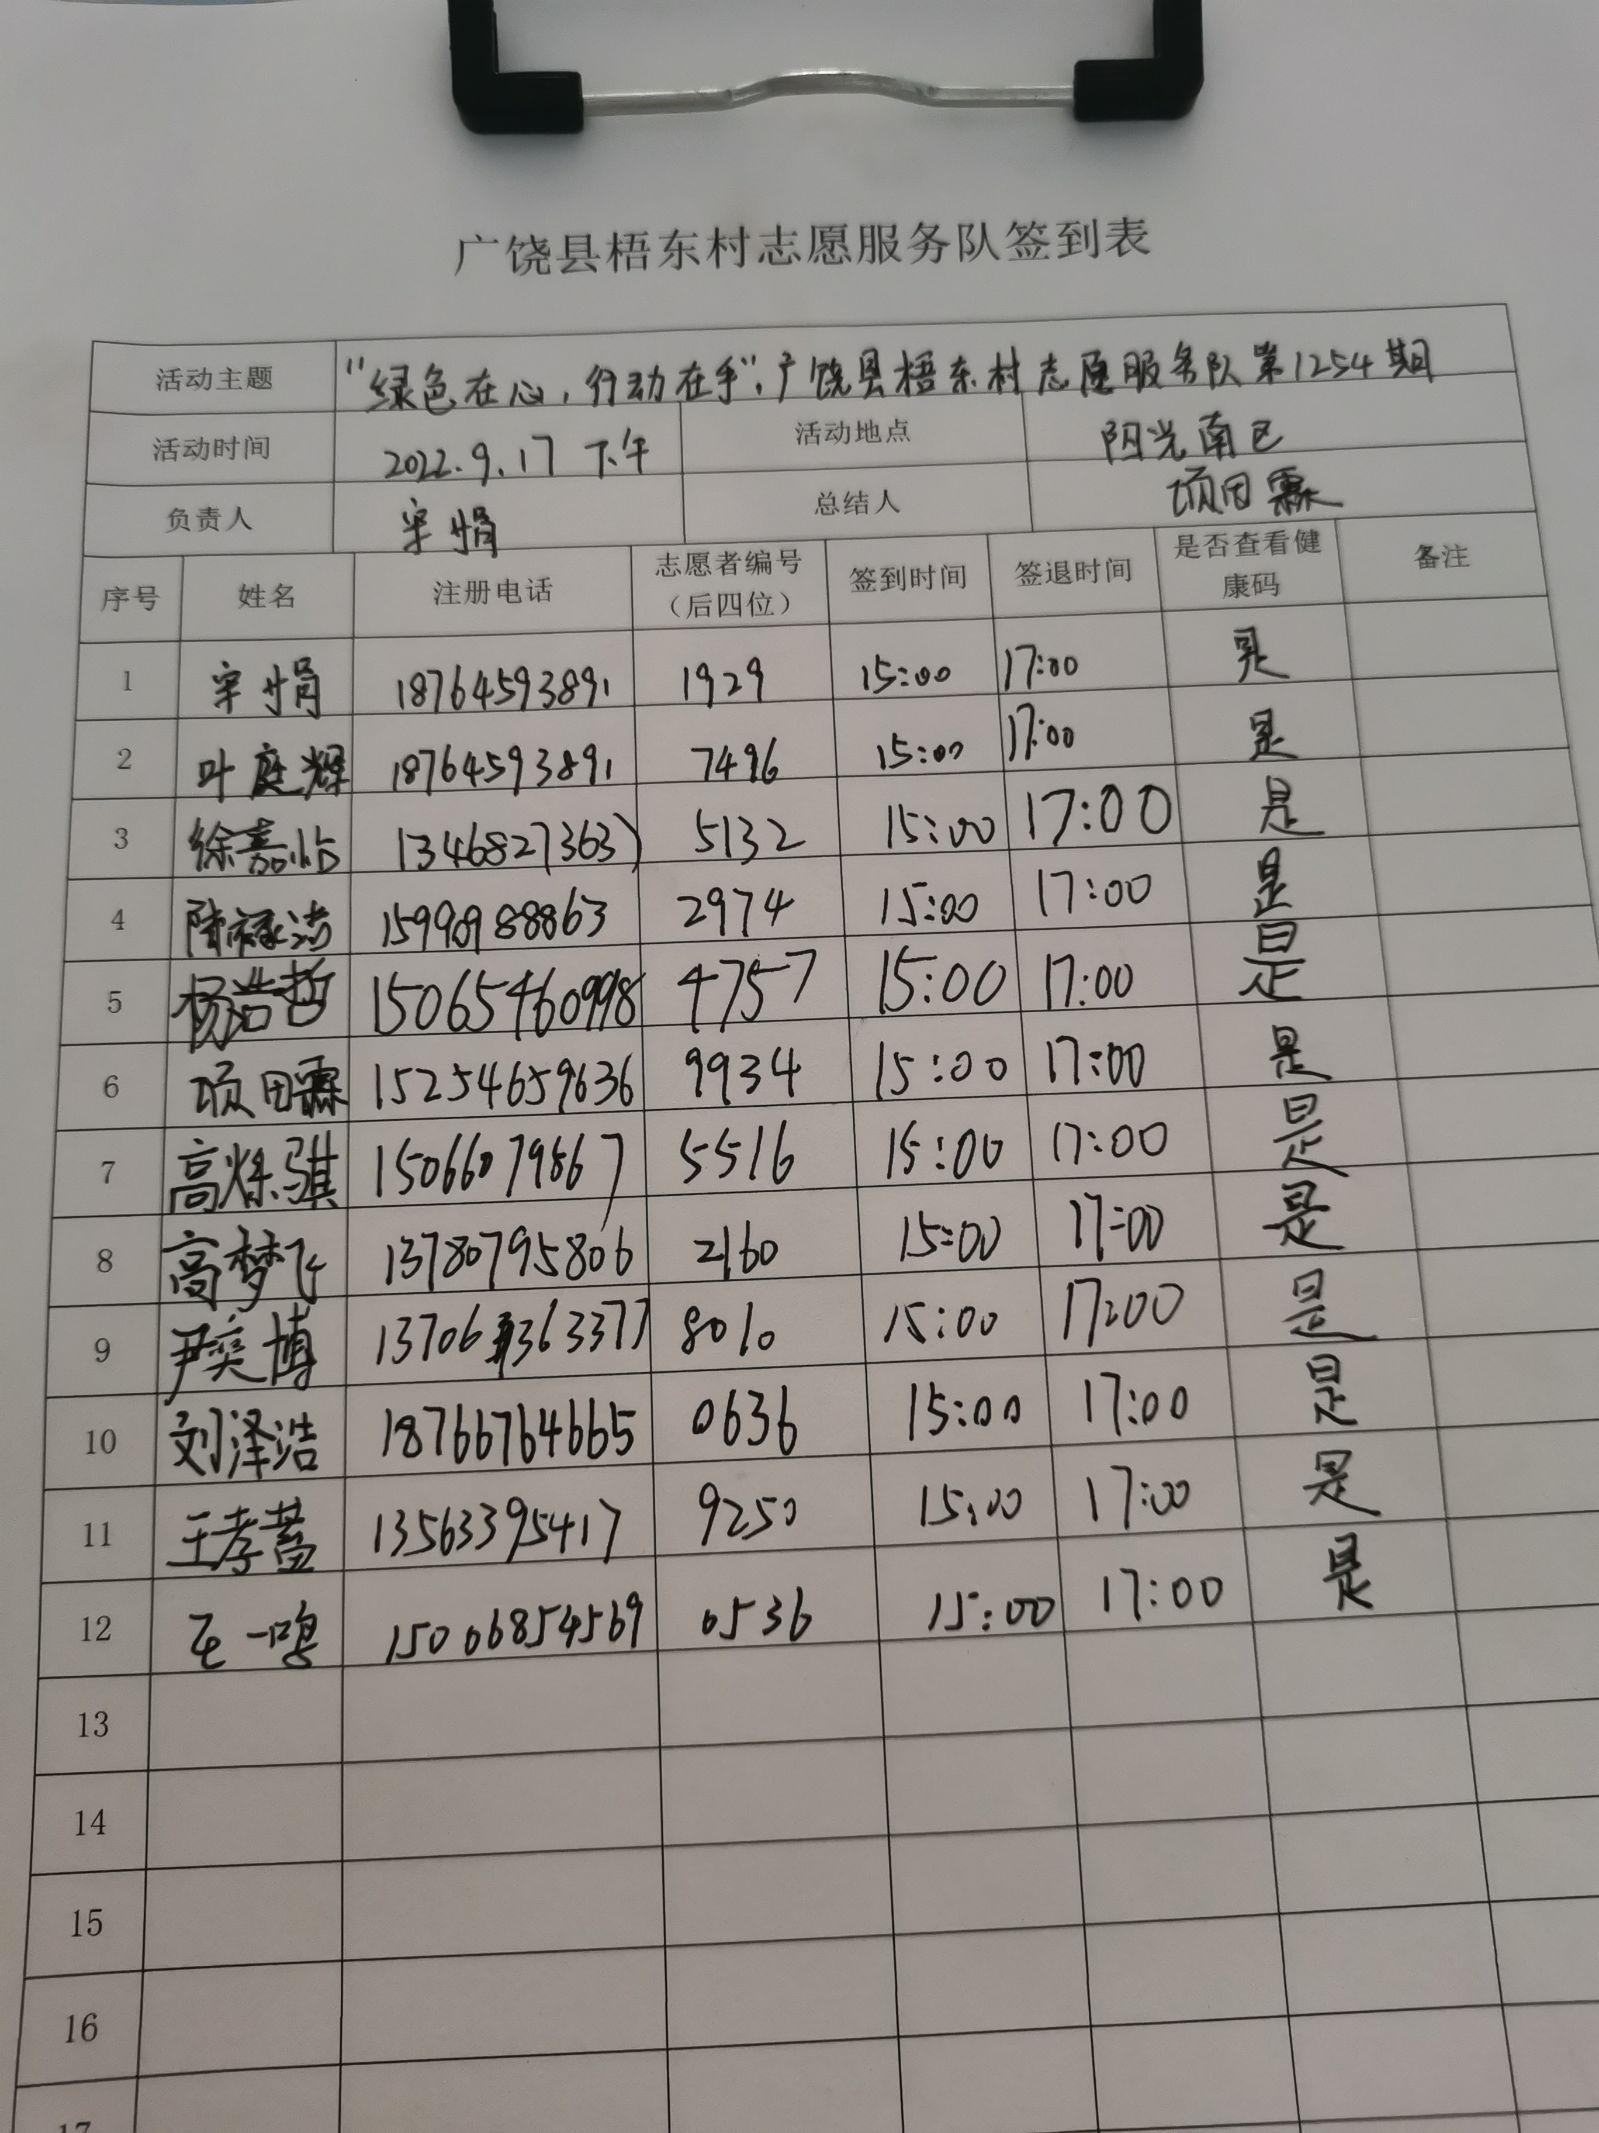 广饶县梧东村志愿服务队签到表
活动主题 "绿色在心,行动在手",广饶县梧东村志愿服务队第1254期
活动时间 2022.9.17 下午 活动地点 阳光南区
负责人 宋娟 总结人 项田霖
序号 姓名 注册电话 志愿者编号（后四位） 签到时间 签退时间 是否查看健康码 备注
1 宋娟 18764593891 1929 15:00 17:00 是
2 叶庭辉 18764593891 7496 15:00 17:00 是
3 徐嘉怡 13468273637 5132 15:00 17:00 是
4 陈禄浩 15990988863 2974 15:00 17:00 是
5 杨浩哲 15065460998 4757 15:00 17:00 是
6 项田霖 15254659636 9934 15:00 17:00 是
7 高烁骐 15066079867 5516 15:00 17:00 是
8 高梦飞 13780795806 2160 15:00 17:00 是
9 尹奕博 13706363377 8010 15:00 17:00 是
10 刘泽浩 18766764665 0636 15:00 17:00 是
11 王孝 13563395417 9250 15:00 17:00 是
12 一鸣 15006854569 0536 15:00 17:00 是
13
14
15
16
17